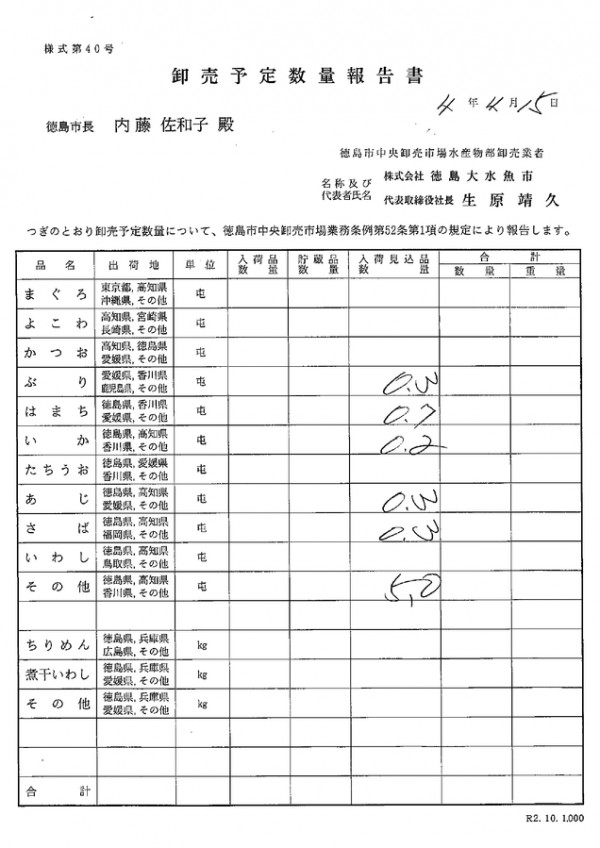 様式第40号
卸売予定数量報告書
4年4月15日
徳島市長 内藤 佐和子 殿
徳島市中央卸売市場水産物部卸売業者
名称及び 株式会社 徳島大水魚市
代表者氏名 代表取締役社長 生原靖久
つぎのとおり卸売予定数量について、徳島市中央卸売市場業務条例第52条第1項の規定により報告します。
品名 出荷地 単位 入荷品数量 貯蔵品数量 入荷見込品数量 合計
数量 重量
まぐろ 東京都,高知県 沖縄県,その他 屯
よこわ 高知県,宮崎県 長崎県,その他 屯
かつお 高知県,徳島県 愛媛県,その他 屯
ぶり 愛媛県,香川県 鹿児島県,その他 屯 0.3
はまち 徳島県,香川県 愛媛県,その他 屯 0.7
いか 徳島県,高知県 香川県,その他 屯 0.2
たちうお 徳島県,愛媛県 香川県,その他 屯
あじ 徳島県,高知県 愛媛県,その他 屯 0.3
さば 徳島県,高知県 福岡県,その他 屯 0.3
いわし 徳島県,高知県 鳥取県,その他 屯
その他 徳島県,高知県 香川県,その他 屯 5,0
ちりめん 徳島県,兵庫県 広島県,その他 kg
煮干いわし 徳島県,兵庫県 愛媛県,その他 kg
その他 徳島県,兵庫県 愛媛県,その他 kg
合計
R2.10.1,000